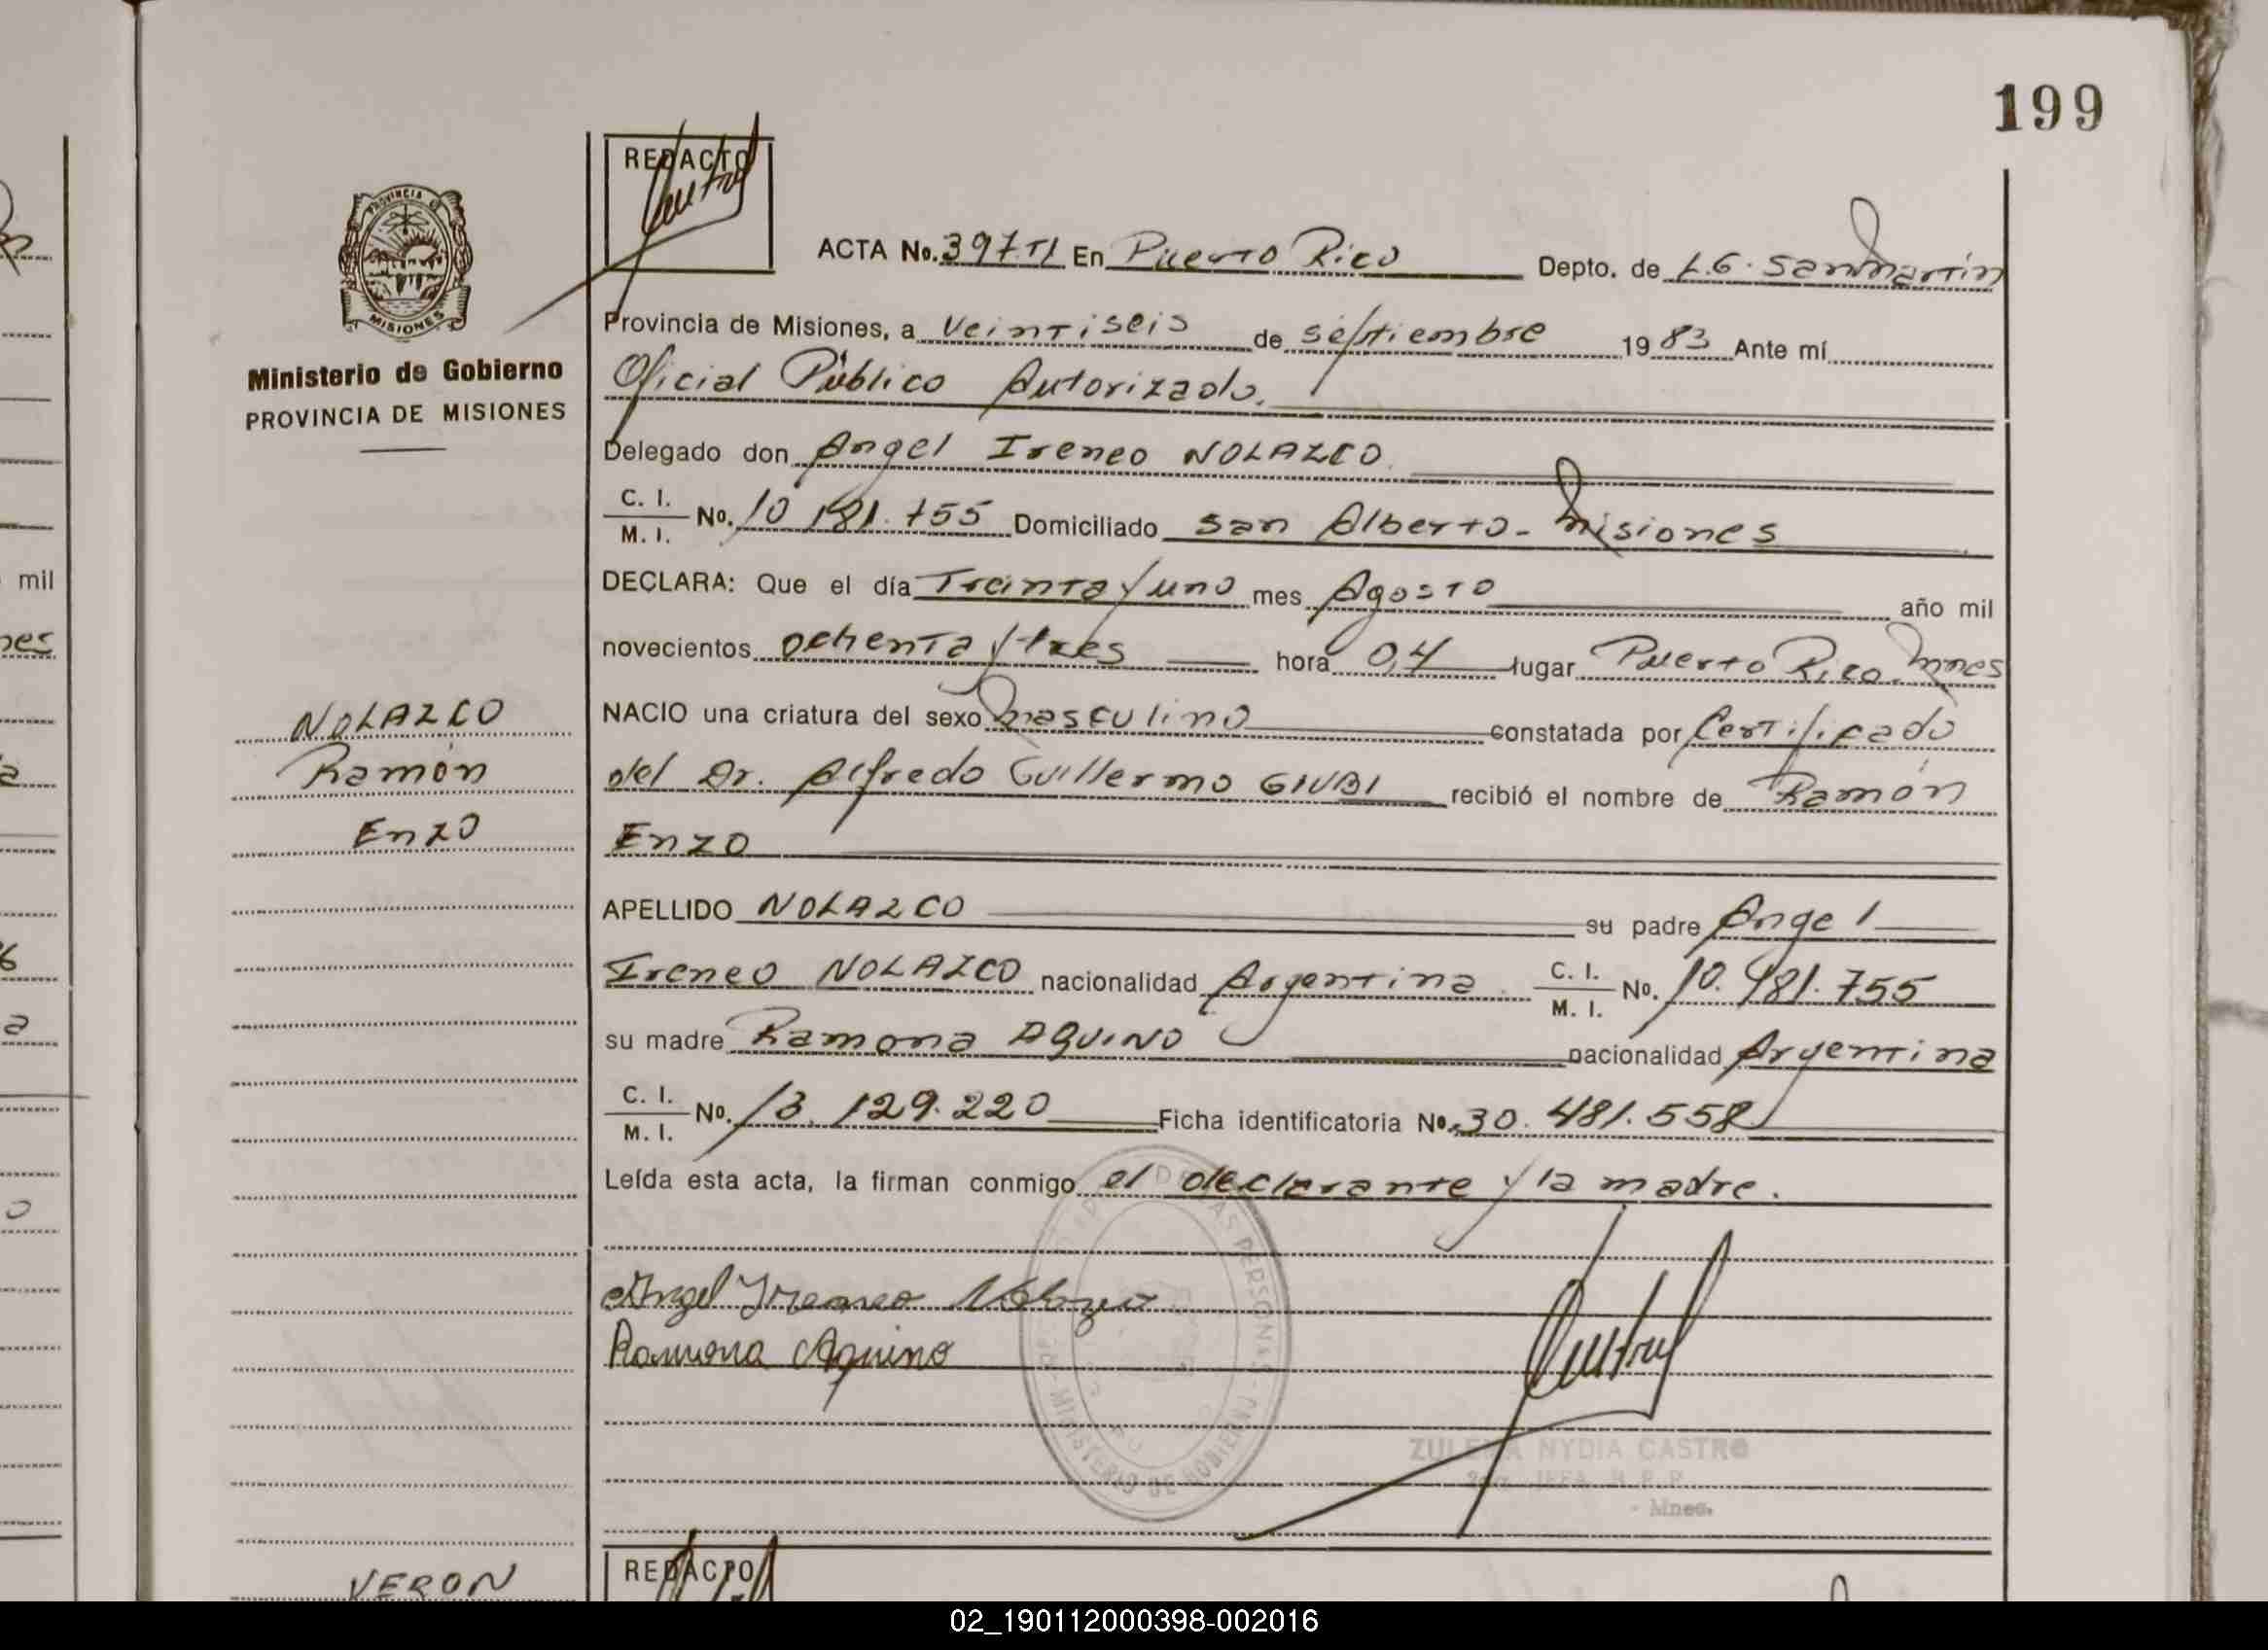 199
REDACTO
PROVINCIA DE
MISIONES
Ministerio de Gobierno
PROVINCIA DE MISIONES
ACTA No. 397.TI En Puerto Rico Depto. de L.G. San Martín
Provincia de Misiones, a veintiseis de septiembre 1983 Ante mí
Oficial Público Autorizado.
Delegado don Angel Ireneo NOLAZCO
C. I.
M. I. No. 10 181.755 Domiciliado San Alberto - Misiones
DECLARA: Que el día Treinta y uno mes Agosto año mil
novecientos ochenta y tres hora 04 lugar Puerto Rico. Mnes
NACIO una criatura del sexo masculino constatada por Certificado
del Dr. Alfredo Guillermo GIUBI recibió el nombre de Ramón
Enzo
APELLIDO NOLAZCO su padre Angel
Ireneo NOLAZCO nacionalidad Argentina C. I.
M. I. No. 10.981.755
su madre Ramona AQUINO nacionalidad Argentina
C. I.
M. I. No. 13.129.220 Ficha identificatoria No. 30.481.558
Leída esta acta, la firman conmigo el declarante y la madre.
NOLAZCO
Ramón
Enzo
Angel Ireneo Nolazco
Ramona Aquino
DE LAS PERSONAS - MINISTERIO DE GOBIERNO
ZULEMA NYDIA CASTRO
JEFA R. P. P.
- Mnes.
VERON
REDACTO
mil
02_190112000398-002016